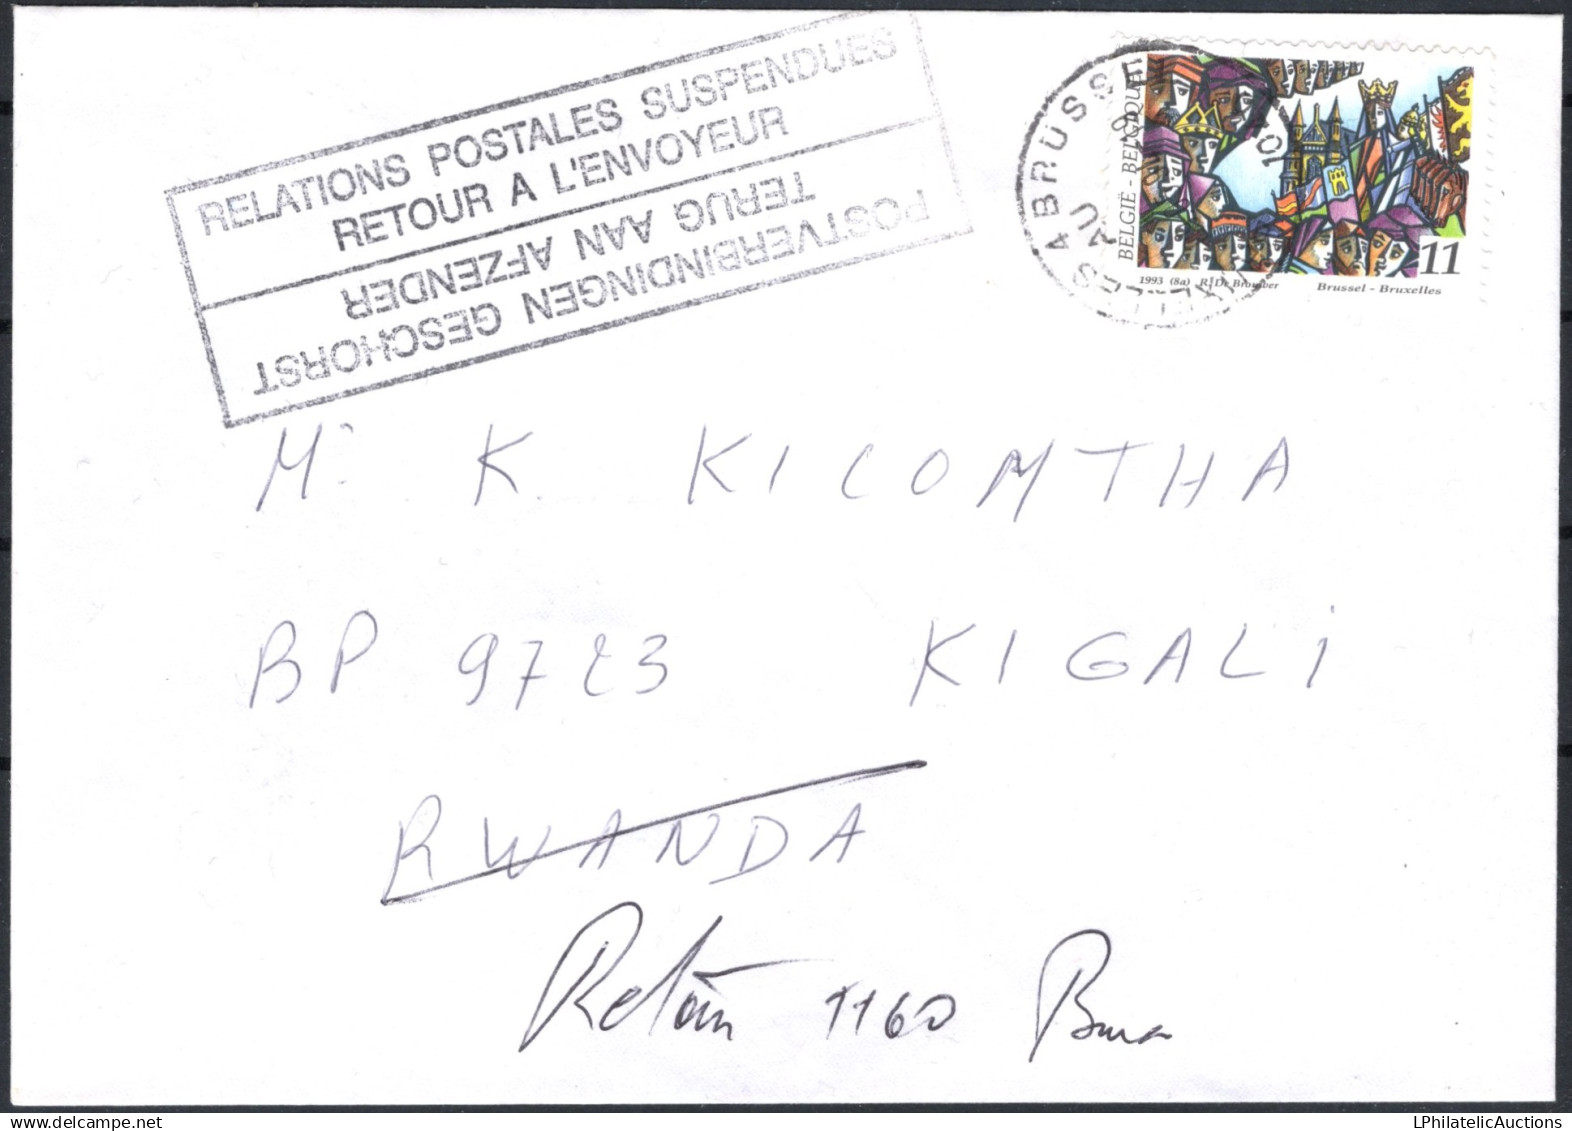 RELATIONS POSTALES SUSPENDUES
RETOUR A L'ENVOYEUR
POSTVERBINDINGEN GESCHORST
TERUG AAN AFZENDER
BELGIË - BELGIQUE
11
1993 (8a) R. De Brouwer Brussel - Bruxelles
Mr K. KICOMTHA
BP 9723 KIGALI
RWANDA
1160
LPhilatelicAuctions